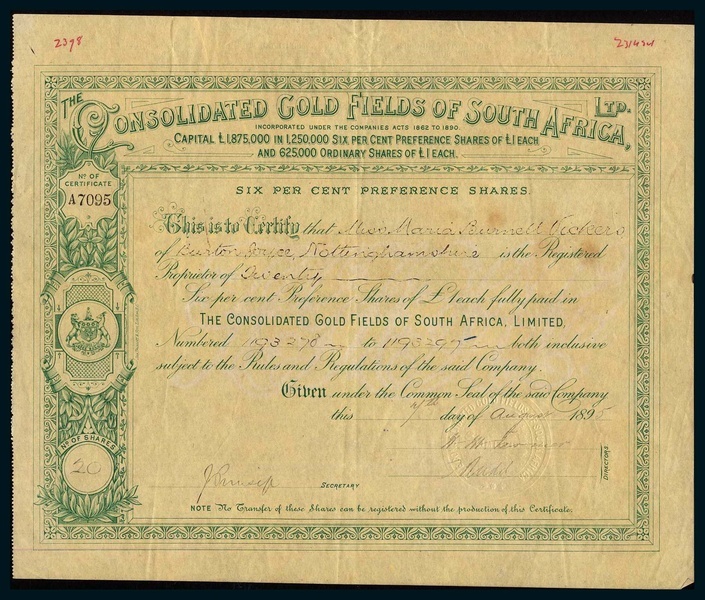 2398
THE CONSOLIDATED GOLD FIELDS OF SOUTH AFRICA, LTD.
INCORPORATED UNDER THE COMPANIES ACTS 1862 TO 1890.
CAPITAL £1,875,000 IN 1,250,000 SIX PER CENT PREFERENCE SHARES OF £1 EACH
AND 625,000 ORDINARY SHARES OF £1 EACH.
No OF CERTIFICATE
A7095
SIX PER CENT PREFERENCE SHARES.
This is to Certify that Miss Maria Burnell Vickers
of Burton Joyce, Nottinghamshire is the Registered
Proprietor of Twenty
Six per cent Preference Shares of £1 each fully paid in
THE CONSOLIDATED GOLD FIELDS OF SOUTH AFRICA, LIMITED,
Numbered 1193278 to 1193297 both inclusive
subject to the Rules and Regulations of the said Company.
Given under the Common Seal of the said Company
this day of August 1895
No OF SHARES
20
Rudd
DIRECTORS
SECRETARY
NOTE No Transfer of these Shares can be registered without the production of this Certificate.